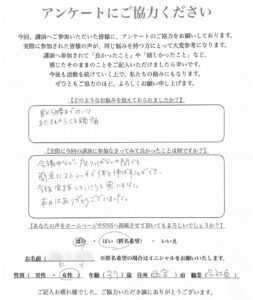 アンケートにご協力ください
今回、講演へご参加いただいた皆様に、アンケートのご協力をお願いしております。
実際に参加された皆様の声が、同じ悩みを持つ方にとって大変参考になります。
講演へ参加されて「良かったこと」や「嬉しかったこと」など、
感じたそのままのことをご記入いただけましたら幸いです。
今後も活動を続けていく上で、私たちの励みにもなります。
ぜひともご協力のほど、よろしくお願い申し上げます。
【どのようなお悩みを抱えておられましたか？】
首から腰までのハリ
またもやらくる頭痛
【実際に今回の講演に参加なさってみて良かったことは何ですか？】
簡単にストレッチで体を伸ばすことができ、
今後実践していこうと思いました。
本日はありがとうございました。
【あなたの声をホームページやSNSへ掲載させて頂いてもよろしいでしょうか？】
はい ・ はい（匿名希望） ・ いいえ
お名前（ ）※匿名希望の場合はイニシャルをお願いいたします。
性別（ 男性 ・ 女性 ） 年齢（ ）歳 住所（ ）市 職業（会社員）
ご記入お疲れ様でした。ご協力いただき誠にありがとうございます。